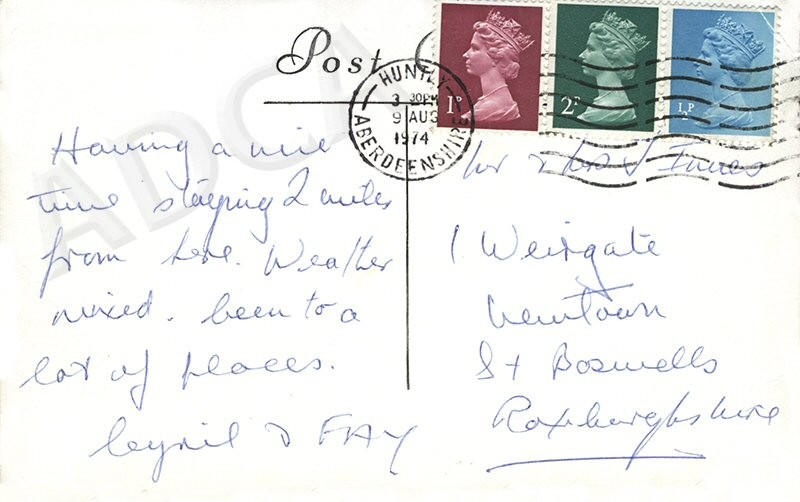 Post
HUNTLY
3 30PM
9 AUG
1974
ABERDEENSHIRE
1P
2P
½P
Having a nice
time staying 2 miles
from here. Weather
mixed. been to a
lot of places.
Cyril & FAY
Mr & Mrs J Innes
1 Weirgate
Newtown
St Boswells
Roxburghshire
ADCA